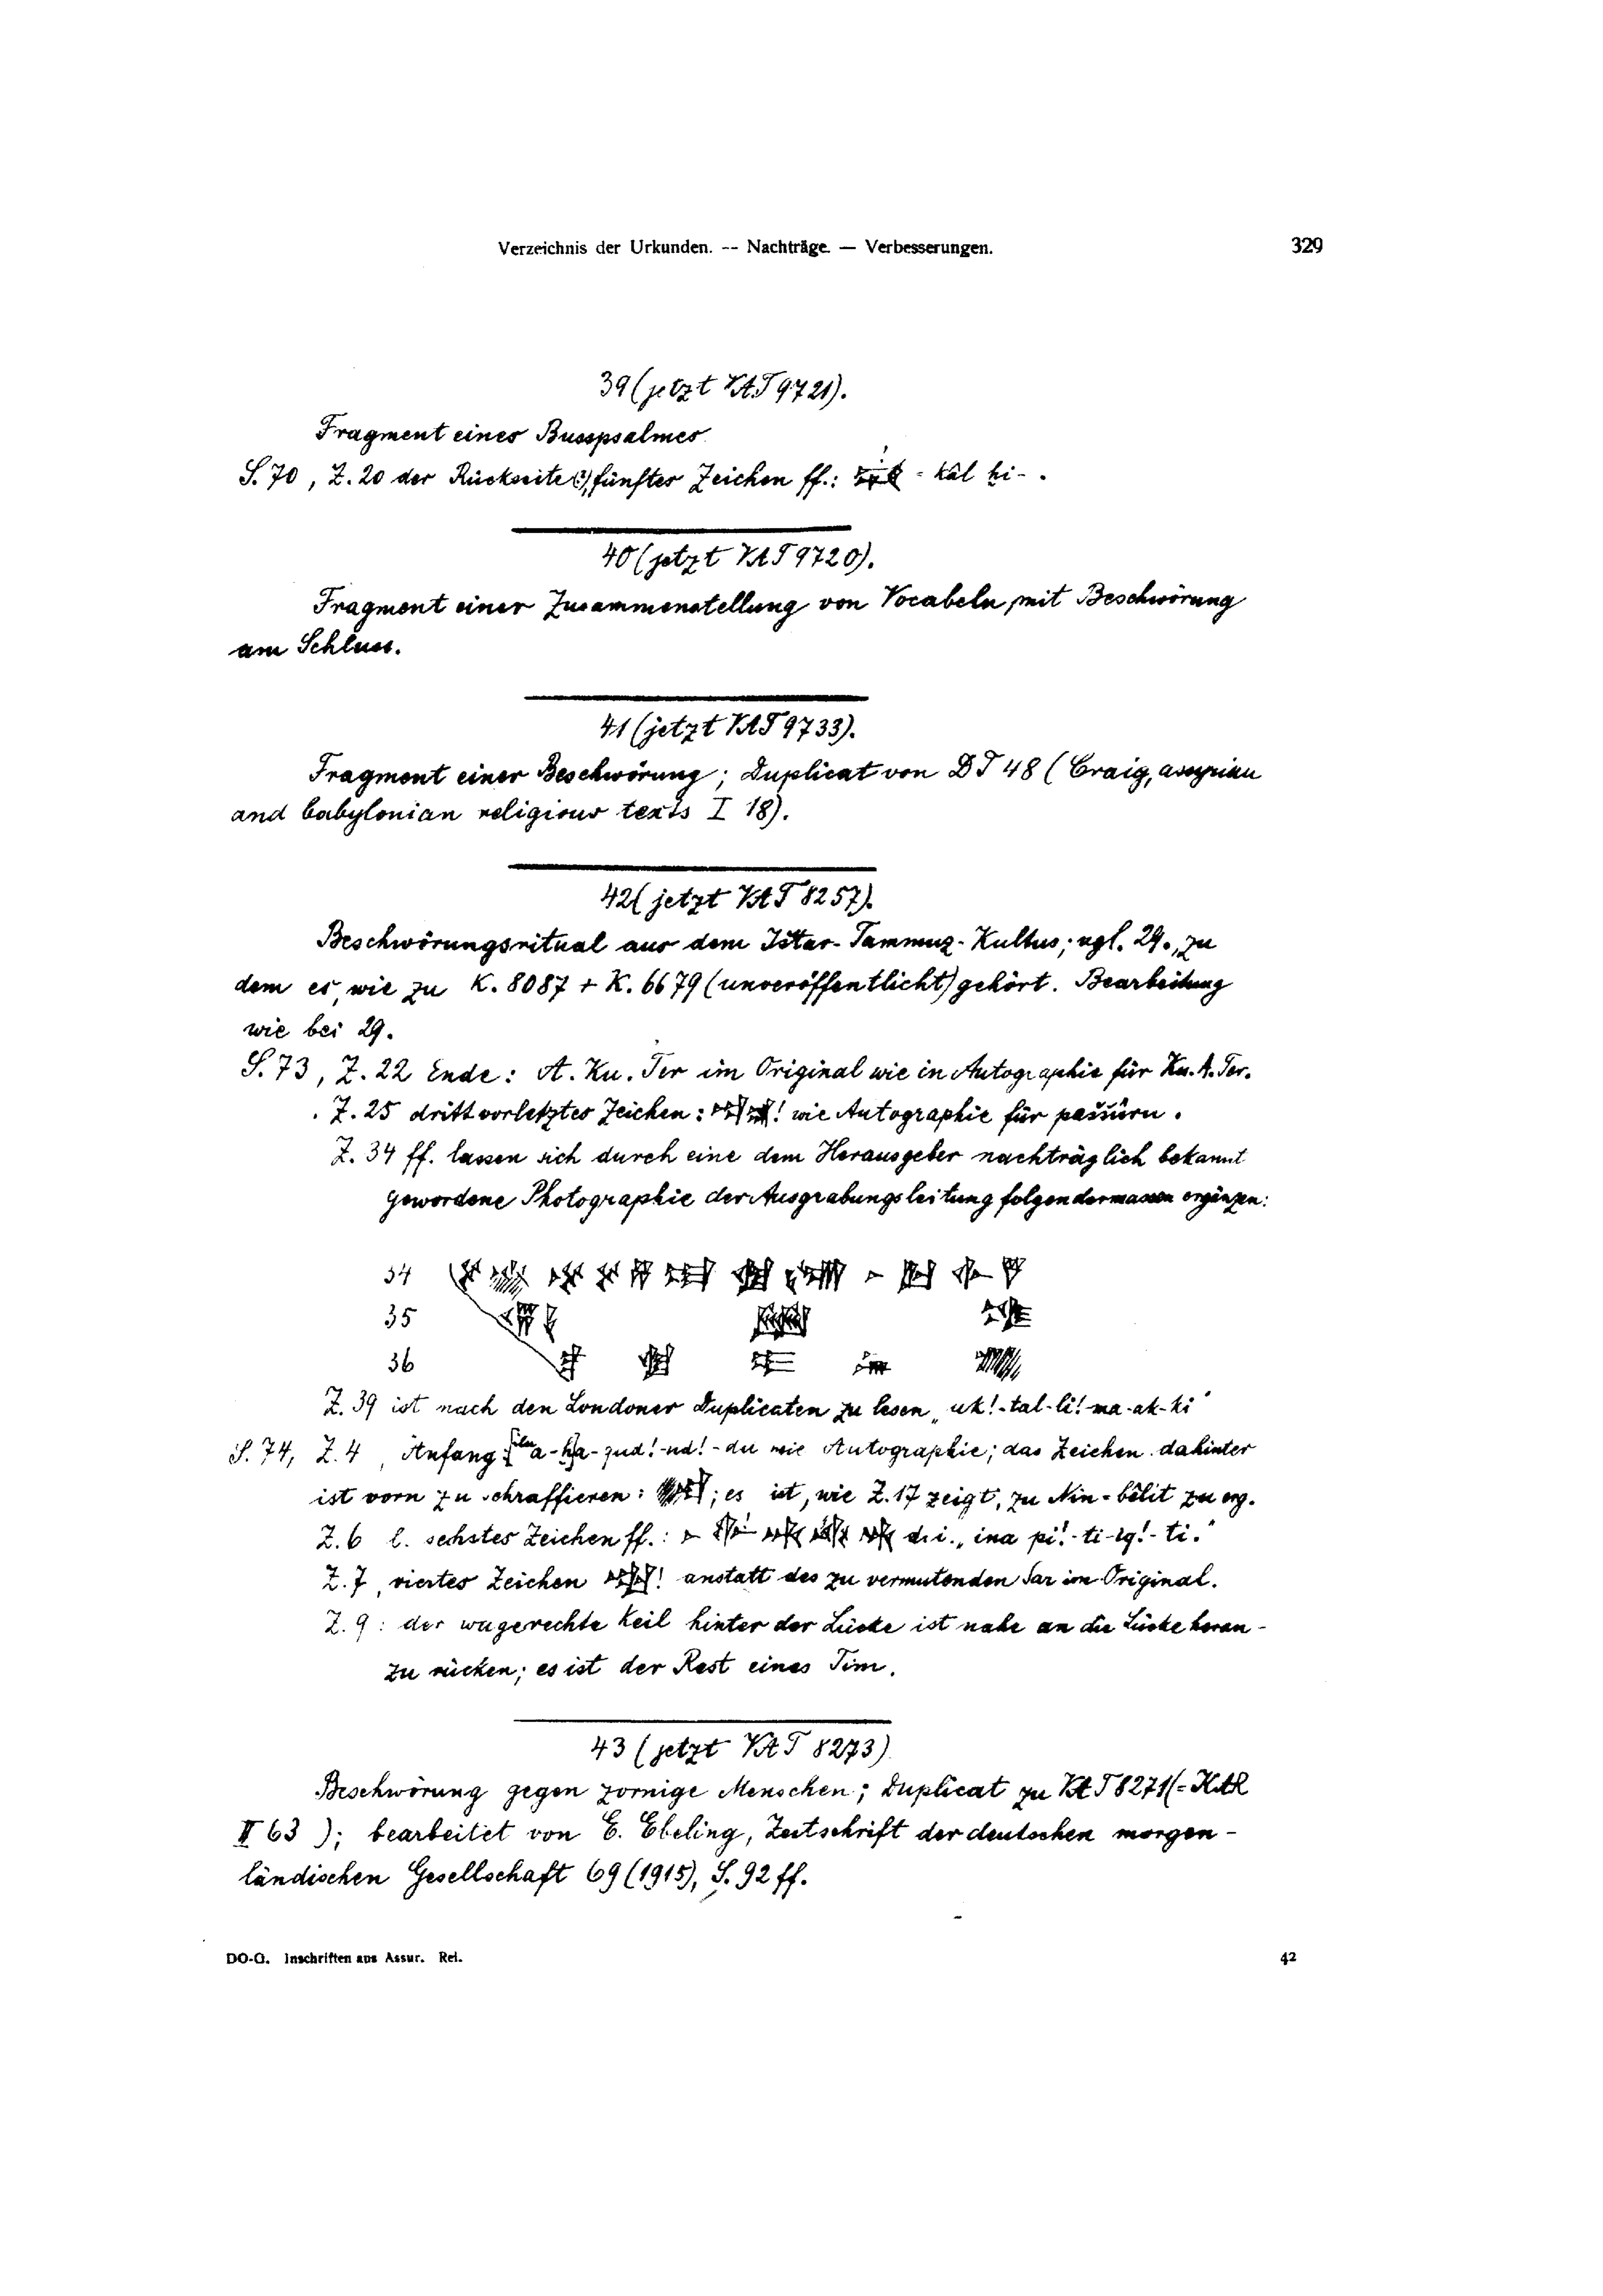 Verzeichnis der Urkunden. -- Nachträge. — Verbesserungen. 329
39 (jetzt VAT 9721).
Fragment eines Busspsalmes
S. 70, Z. 20 der Rückseite(?), fünftes Zeichen ff.: - kál ḫi- .
40 (jetzt VAT 9720).
Fragment einer Zusammenstellung von Vocabeln, mit Beschwörung
am Schluss.
41 (jetzt VAT 9733).
Fragment einer Beschwörung; Duplicat von DT 48 (Craig, assyrian
and babylonian religious texts I 18).
42 (jetzt VAT 8257).
Beschwörungsritual aus dem Ištar-Tammuz-Kultus; vgl. 29., zu
dem es, wie zu K. 8087 + K. 6679 (unveröffentlicht) gehört. Bearbeitung
wie bei 29.
S. 73, Z. 22 Ende: A. Ku. Ter im Original wie in Autographie für Ku. A. Ter.
Z. 25 drittvorletztes Zeichen: ! wie Autographie für paššûru.
Z. 34 ff. lassen sich durch eine dem Herausgeber nachträglich bekannt
gewordene Photographie der Ausgrabungsleitung folgendermassen ergänzen:
34
35
36
Z. 39 ist nach den Londoner Duplicaten zu lesen „uk!-tal-li!-ma-ak-ki"
S. 74, Z. 4, Anfang: ilu a-ḫa-zud!-ud!-du wie Autographie; das Zeichen dahinter
ist vorn zu schraffieren: ; es ist, wie Z. 17 zeigt, zu Nin = bêlit zu erg.
Z. 6 l. sechstes Zeichen ff.: d. i. „ina pi!-ti-iq!-ti."
Z. 7, viertes Zeichen ! anstatt des zu vermutenden Sar im Original.
Z. 9: der wagerechte Keil hinter der Lücke ist nahe an die Lücke heran-
zu rücken; es ist der Rest eines Tim.
43 (jetzt VAT 8273)
Beschwörung gegen zornige Menschen; Duplicat zu VAT 8271 (= KAR
II 63); bearbeitet von E. Ebeling, Zeitschrift der deutschen morgen-
ländischen Gesellschaft 69 (1915), S. 92 ff.
DO-G. Inschriften aus Assur. Rel. 42